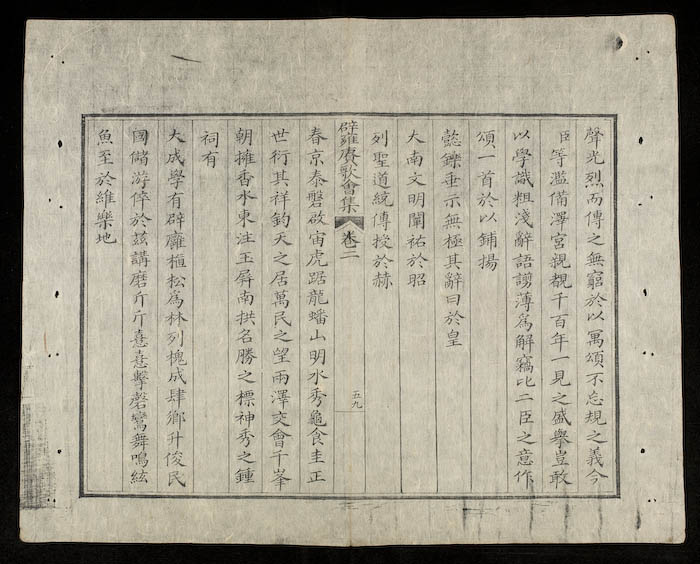 聲光烈而傳之無窮於以寓頌不忘規之義今
臣等濫備澤宮親覩千百年一見之盛舉豈敢
以學識粗淺辭語謭薄為解竊比二臣之意作
頌一首於以鋪揚
懿鑠垂示無極其辭曰於皇
大南文明闡祐於昭
列聖道統傳授於赫
辟雍賡歌會集 卷二 五九
春京泰磐啟宙虎踞龍蟠山明水秀龜食圭正
世衍其祥鈞天之居萬民之望兩澤交會千峯
朝擁香水東注玉屏南拱名勝之標神秀之鍾
祠有
大成學有辟廱植松為林列槐成肆鄉升俊民
國儲游倅於茲講磨斤斤憙憙擊磬鸞舞鳴絃
魚至於維樂地